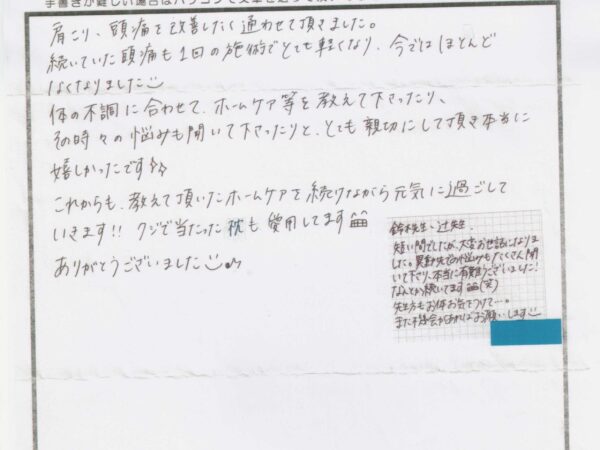 手書きが難しい場合はパソコンで文章を送って頂い
肩こり、頭痛を改善したく通わせて頂きました。
続いていた頭痛も1回の施術でとても軽くなり、今ではほとんど
なくなりました
体の不調に合わせて、ホームケア等を教えて下さったり、
その時々の悩みも聞いて下さったりと、とても親切にして頂き本当に
嬉しかったです
これからも、教えて頂いたホームケアを続けながら元気に過ごして
いきます!! クジで当たった枕も愛用してます
ありがとうございました
鈴木先生、辻先生
短い間でしたが、大変お世話になりま
した。異動先での悩みもたくさん聞
いて下さり、本当に有難うございました!
なんとか続いてます(笑)
先生方もお体お気をつけて…。
また機会があればお願いします